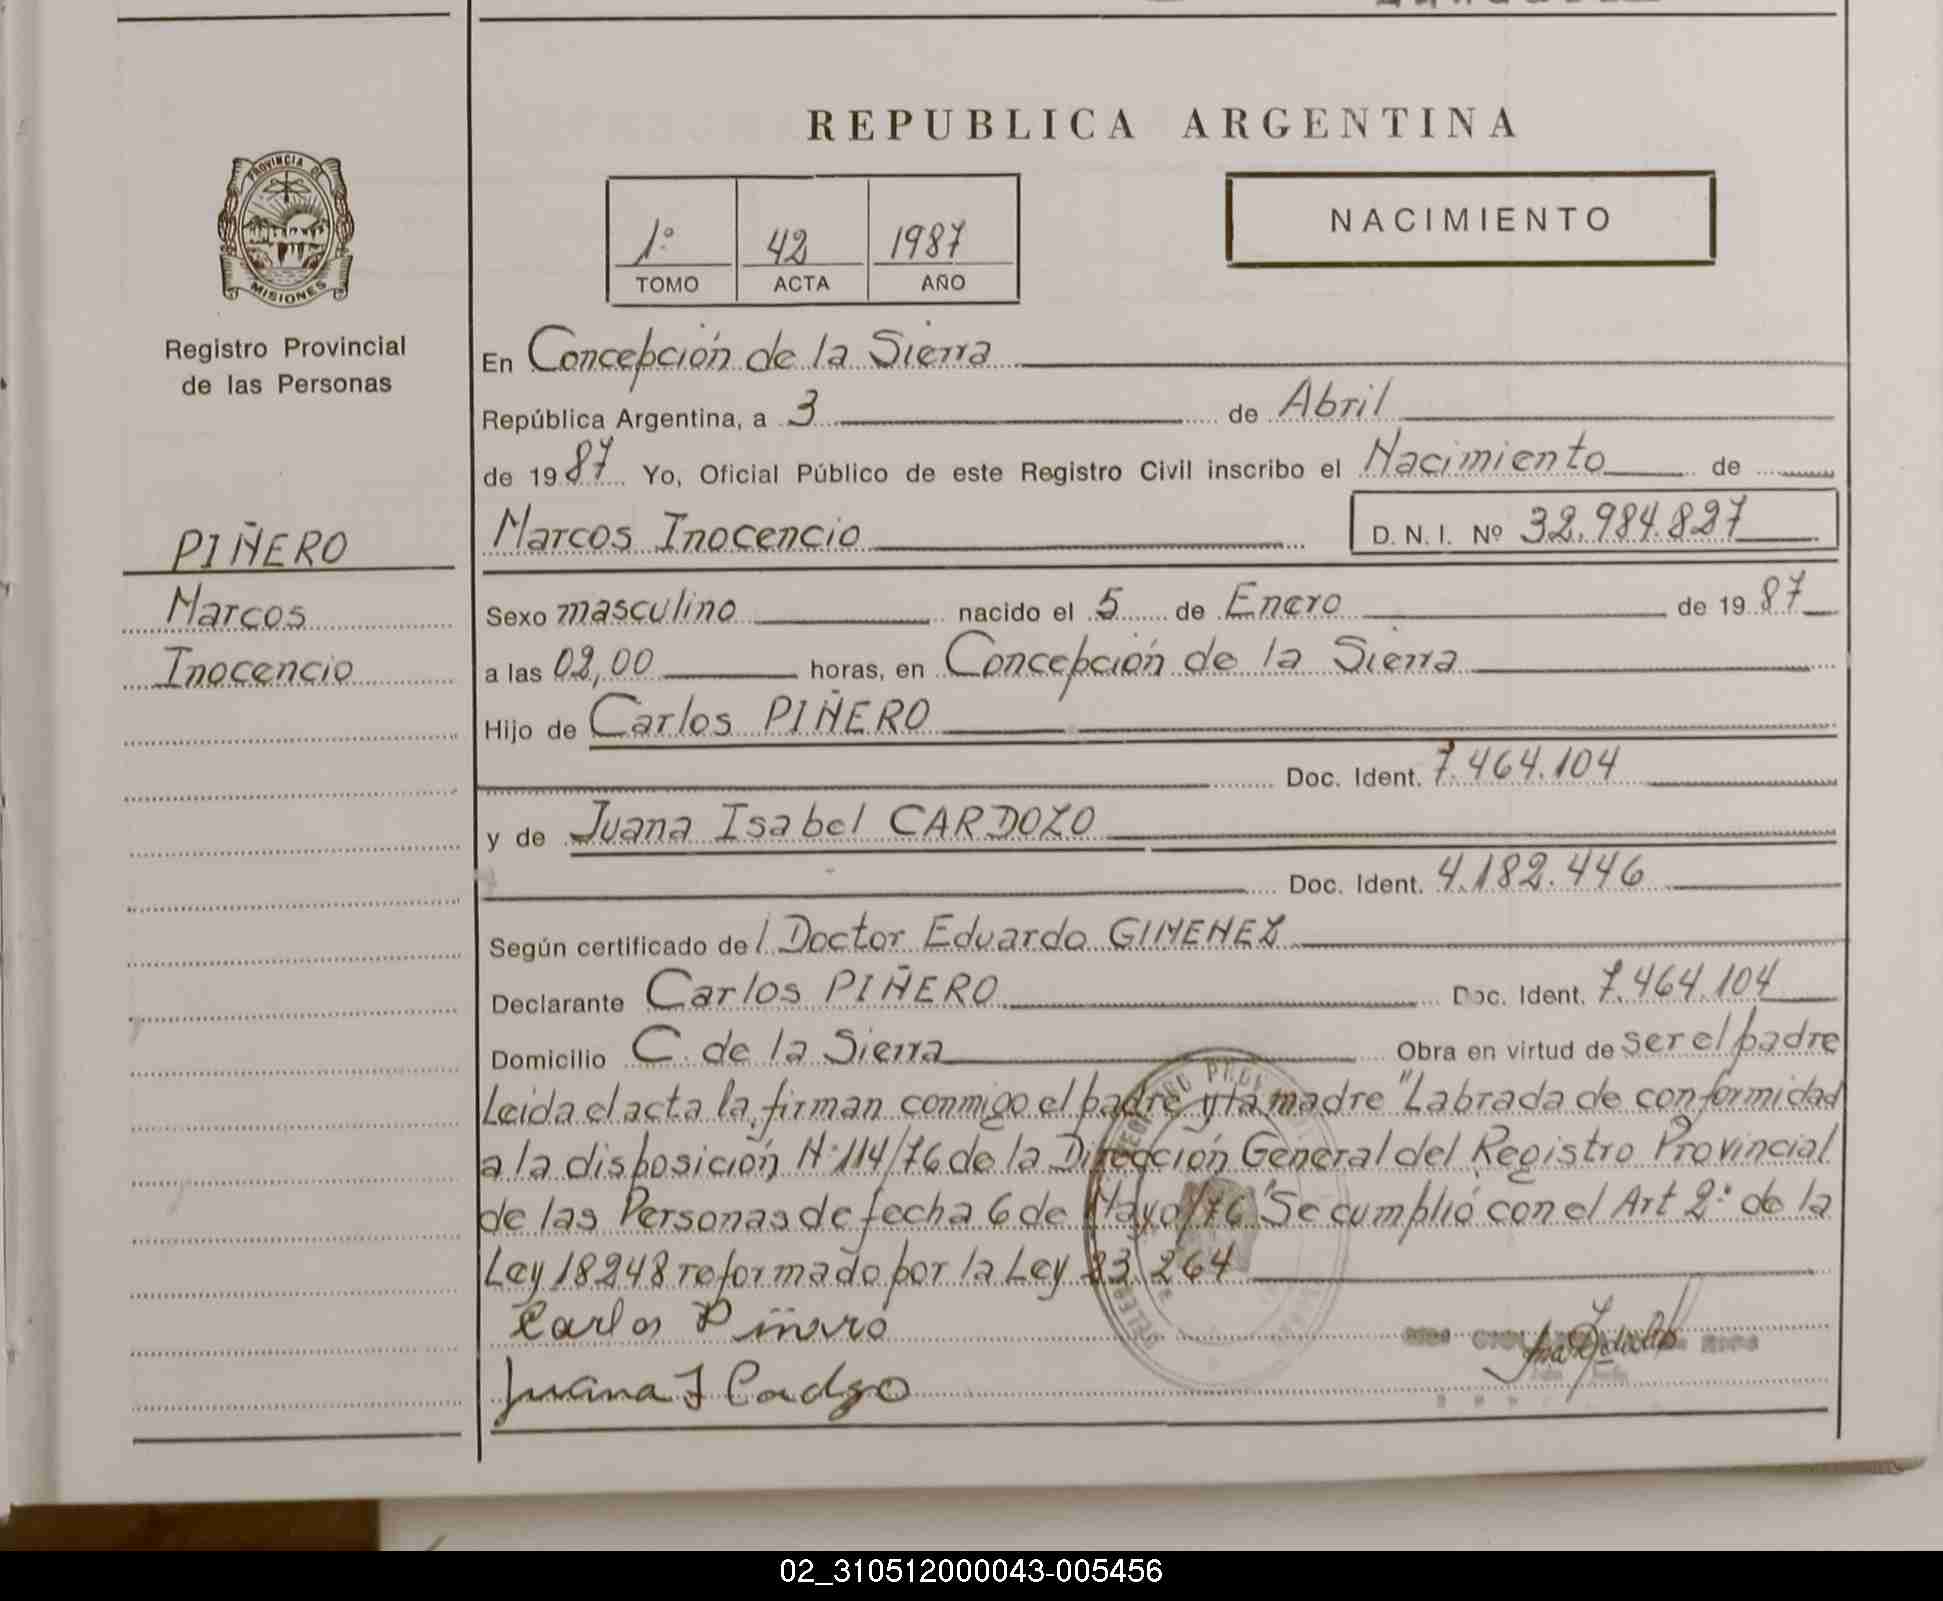 REPUBLICA ARGENTINA
PROVINCIA DE
MISIONES
Registro Provincial
de las Personas
1º 42 1987
TOMO ACTA AÑO
NACIMIENTO
En Concepción de la Sierra
República Argentina, a 3 de Abril
de 1987 Yo, Oficial Público de este Registro Civil inscribo el Nacimiento de
PIÑERO
Marcos Inocencio
Marcos Inocencio D. N. I. Nº 32.984.827
Sexo masculino nacido el 5 de Enero de 1987
a las 02,00 horas, en Concepción de la Sierra
Hijo de Carlos PIÑERO
Doc. Ident. 7.464.104
y de Juana Isabel CARDOZO
Doc. Ident. 4.182.446
Según certificado del Doctor Eduardo GIMENEZ
Declarante Carlos PIÑERO Doc. Ident. 7.464.104
Domicilio C. de la Sierra Obra en virtud de ser el padre
Leida el acta la firman conmigo el padre y la madre "Labrada de conformidad
a la disposición Nº 114/76 de la Dirección General del Registro Provincial
de las Personas de fecha 6 de Mayo/76 "Se cumplió con el Art 2º de la
Ley 18248 reformado por la Ley 23.264
Carlos Piñero
Juana I Cadzo
02_310512000043-005456